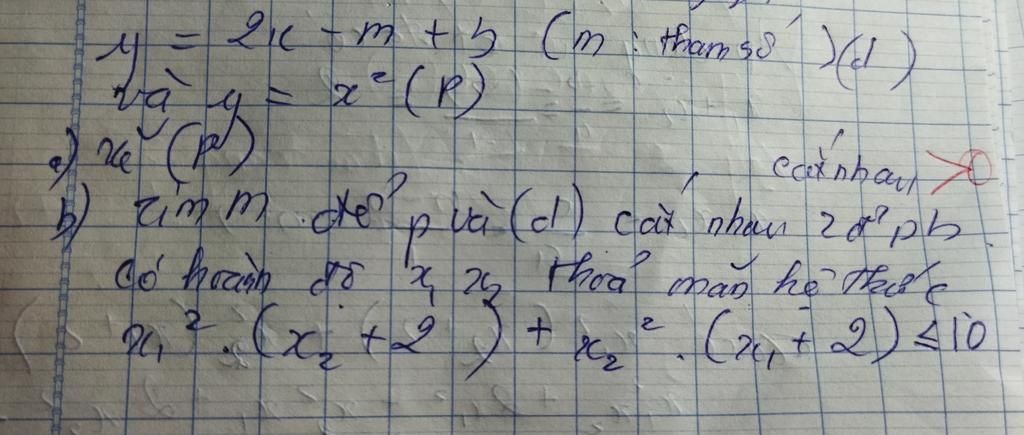 y = 2x - m + 5 (m : tham số) (d)
và y = x² (P)
a) vẽ (P)
cắt nhau
b) tìm m để P và (d) cắt nhau 2 đ' pb
có hoành độ x₁ x₂ thoả mãn hệ thức
x₁² . (x₂ + 2) + x₂² . (x₁ + 2) ≤ 10